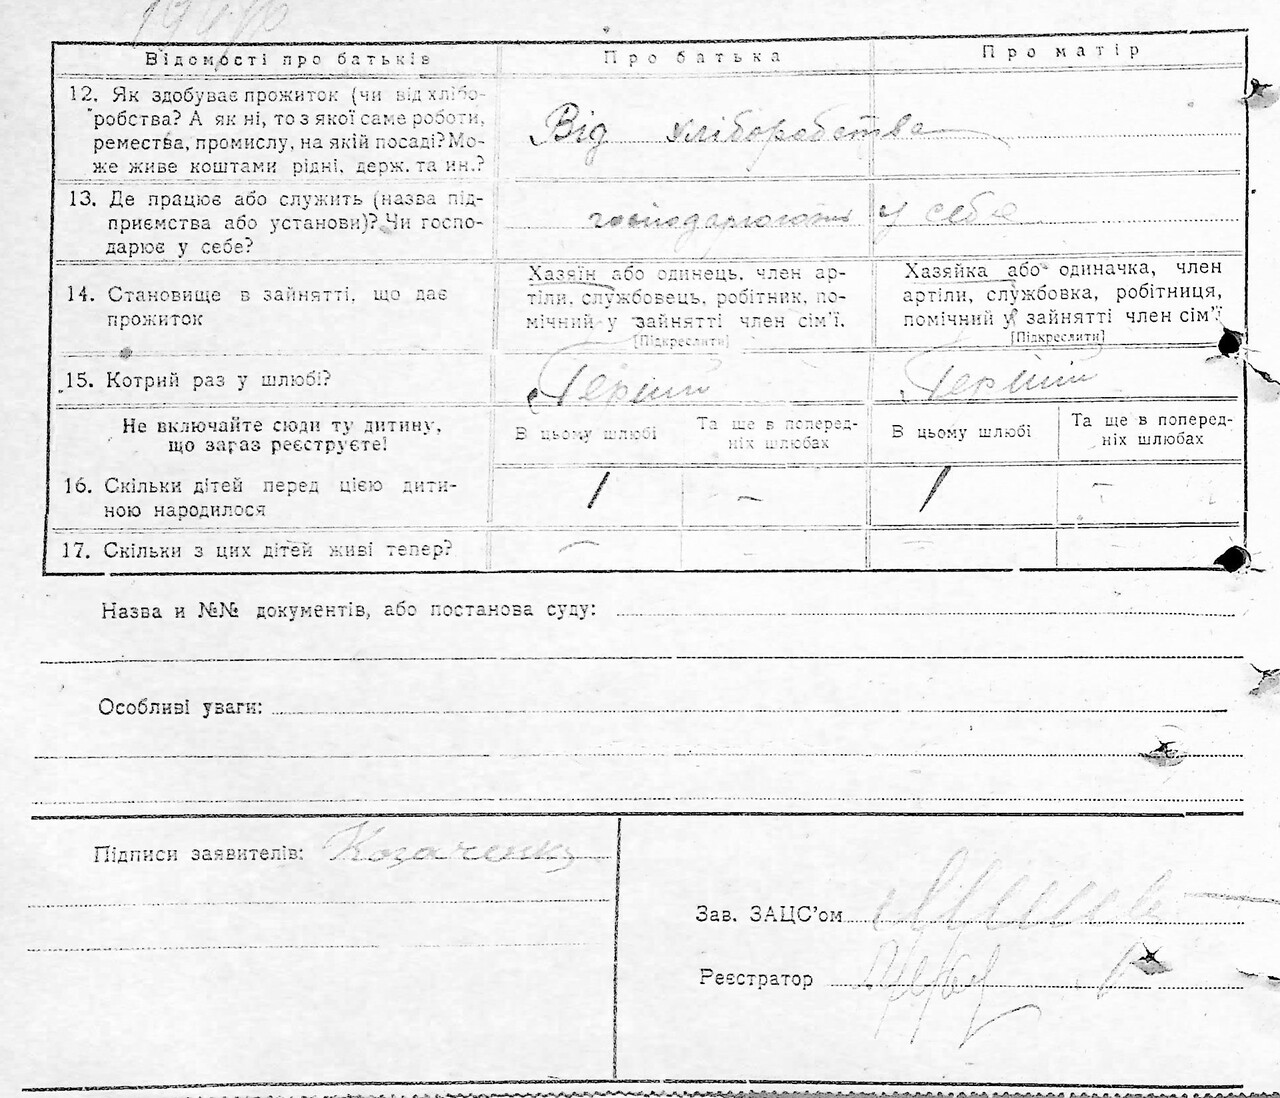 Відомості про батьків Про батька Про матір
12. Як здобуває прожиток (чи від хлібо-
робства? А як ні, то з якої саме роботи,
ремества, промислу, на якій посаді? Мо-
же живе коштами рідні, держ. та ин.?
Від хліборобства
13. Де працює або служить (назва під-
приємства або установи)? Чи госпо-
дарює у себе?
господарюють у себе
14. Становище в зайнятті, що дає
прожиток
Хазяїн або одинець, член ар-
тіли, службовець, робітник, по-
мічний у зайнятті член сім'ї.
[Підкреслити]
Хазяйка або одиначка, член
артіли, службовка, робітниця,
помічний у зайнятті член сім'ї
[Підкреслити]
15. Котрий раз у шлюбі? Перший Перший
Не включайте сюди ту дитину,
що зараз реєструєте!
В цьому шлюбі
Та ще в поперед-
ніх шлюбах
В цьому шлюбі
Та ще в поперед-
ніх шлюбах
16. Скільки дітей перед цією дити-
ною народилося
1 - 1 -
17. Скільки з цих дітей живі тепер? - - - -
Назва и №№ документів, або постанова суду:
Особливі уваги:
Підписи заявителів: Козаченко
Зав. ЗАЦС'ом
Реєстратор